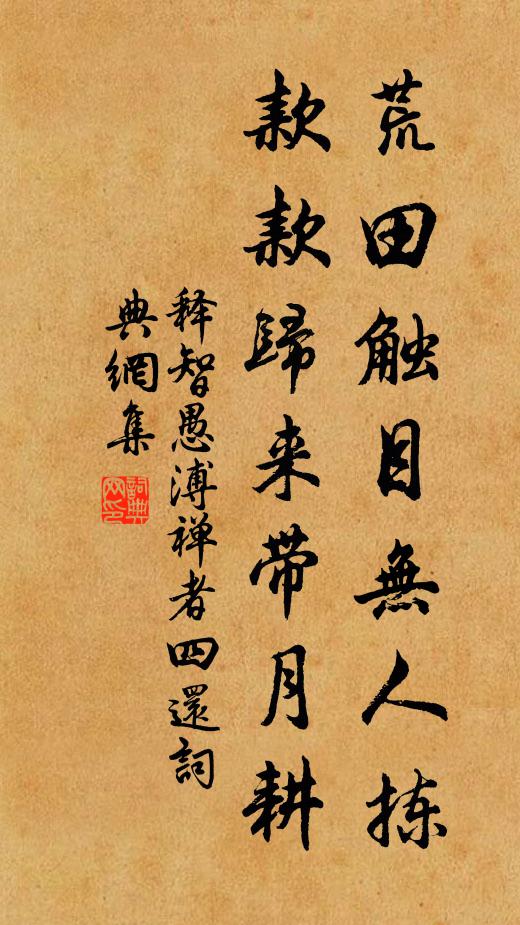 荒田触目無人拣
款款歸来带月耕
释智愚溥禅者四還詞
典網集
詞典網印